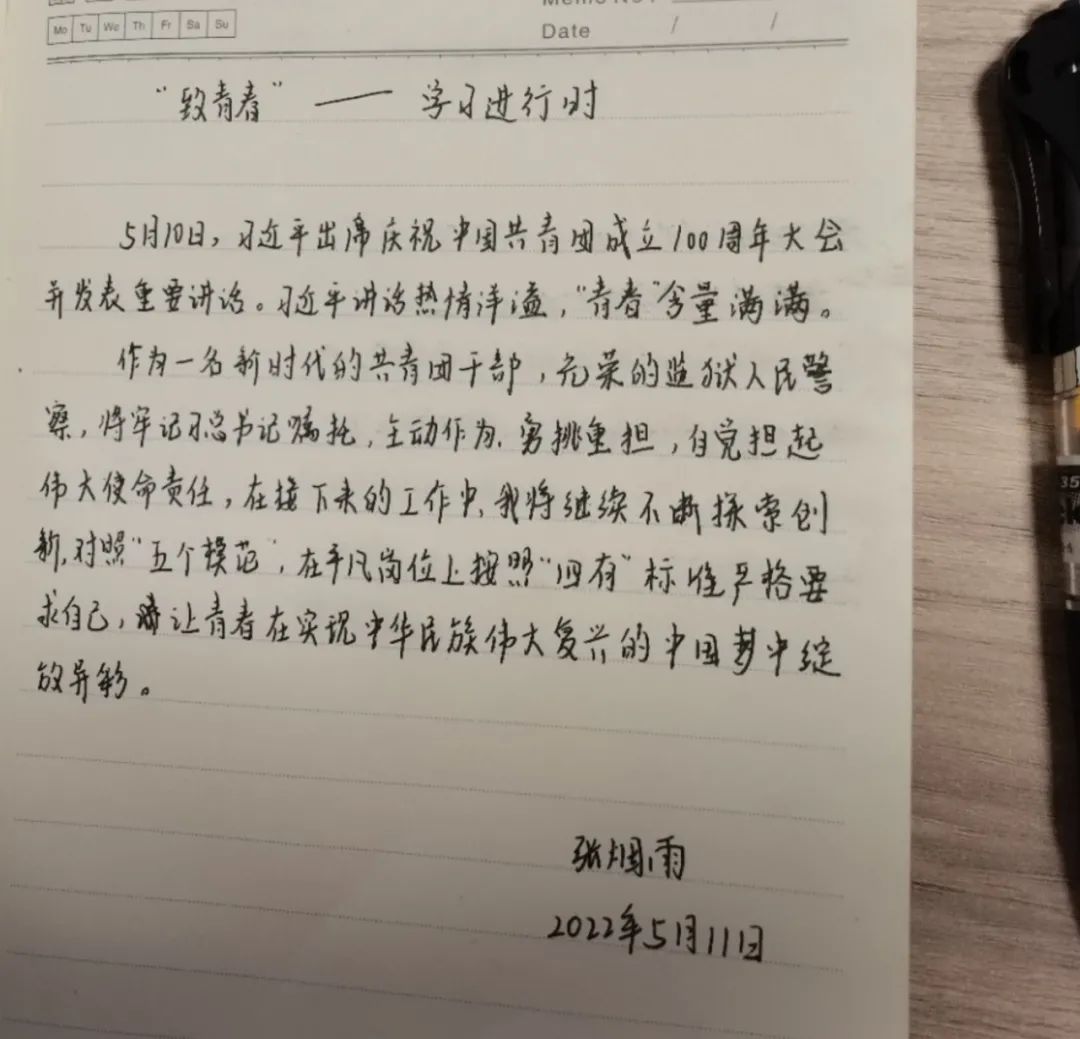 Mo Tu We Th Fr Sa Su
Memo No.
Date / /
“致青春” —— 学习进行时
5月10日，习近平出席庆祝中国共青团成立100周年大会
并发表重要讲话。习近平讲话热情洋溢，“青春”含量满满。
作为一名新时代的共青团干部，光荣的监狱人民警
察，将牢记习总书记嘱托，主动作为、勇挑重担，自觉担起
伟大使命责任，在接下来的工作中，我将继续不断探索创
新，对照“五个模范”，在平凡岗位上按照“四有”标准严格要
求自己，让青春在实现中华民族伟大复兴的中国梦中绽
放异彩。
张烟雨
2022年5月11日